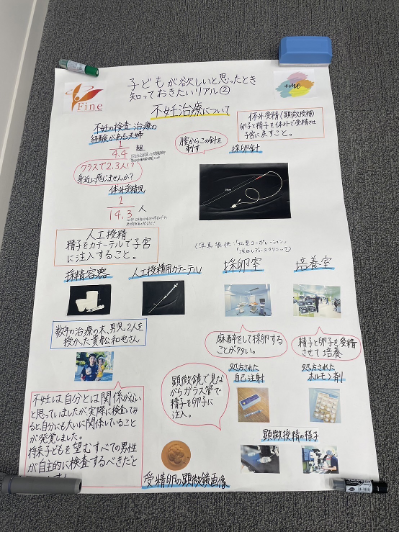 Fine
子どもが欲しいと思ったとき
知っておきたいリアル②
不妊治療について
不妊の検査・治療の
経験がある夫婦
1
4.4 組
クラスで2、3人!?
身近に感じませんか?
体外受精児
1
14.3 人
腟からこの針を
刺す
採卵針
体外受精(顕微授精)
卵子と精子を体外で受精させ
子宮に戻すこと。
人工授精
精子をカテーテルで子宮
に注入すること。
採精容器
人工授精用カテーテル
採卵室
培養室
麻酔をして採卵する
ことが多い。
精子と卵子を受精
させて培養
数年の治療の末、男児2人を
授かった
不妊は自分とは関係がない
と思っていましたが実際に検査してみ
ると、自分にも大いに関係していること
が発覚しました。
将来子どもを望むすべての男性
が自主的に検査するべきだと
顕微鏡で見な
がらガラス管で
精子を卵子に
注入。
処方された
自己注射
処方された
ホルモン剤
顕微授精の様子
受精卵の顕微鏡画像